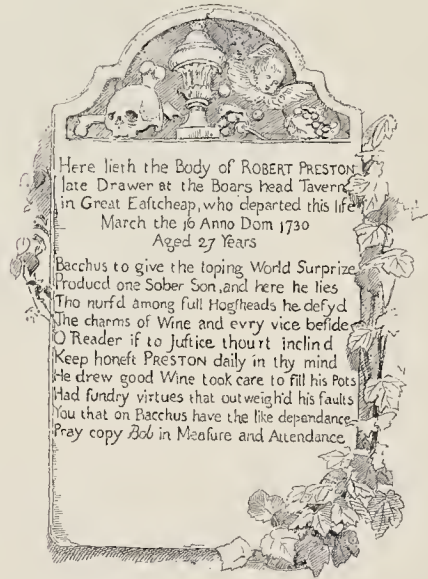 Here lieth the Body of ROBERT PRESTON
late Drawer at the Boars head Tavern
in Great Eaſtcheap, who departed this life
March the 16 Anno Dom 1730
Aged 27 Years
Bacchus to give the toping World Surprize
Produc'd one Sober Son, and here he lies
Tho nurſ'd among full Hogſheads he defy'd
The charms of Wine and ev'ry vice beſide
O Reader if to Juſtice thou'rt inclin'd
Keep honeſt PRESTON daily in thy mind
He drew good Wine took care to fill his Pots
Had ſundry virtues that outweigh'd his faults
You that on Bacchus have the like dependance
Pray copy Bob in Meaſure and Attendance